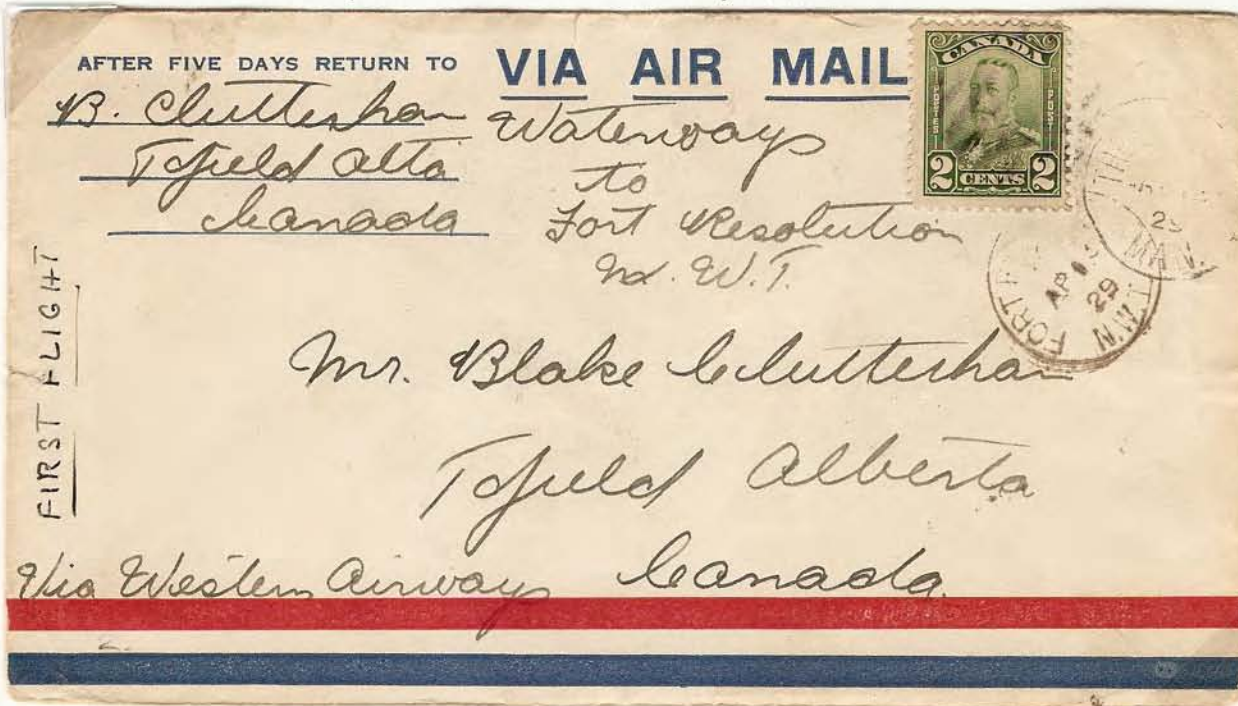 AFTER FIVE DAYS RETURN TO
VIA AIR MAIL
B. Clutterham
Tofield Alta
Canada
Waterways
to
Fort Resolution
N.W.T.
CANADA
POSTES POST
2 CENTS 2
MAN.
FORT
AP
29
N.W.T.
FIRST FLIGHT
Mr. Blake Clutterham
Tofield Alberta
Canada.
Via Western Airways